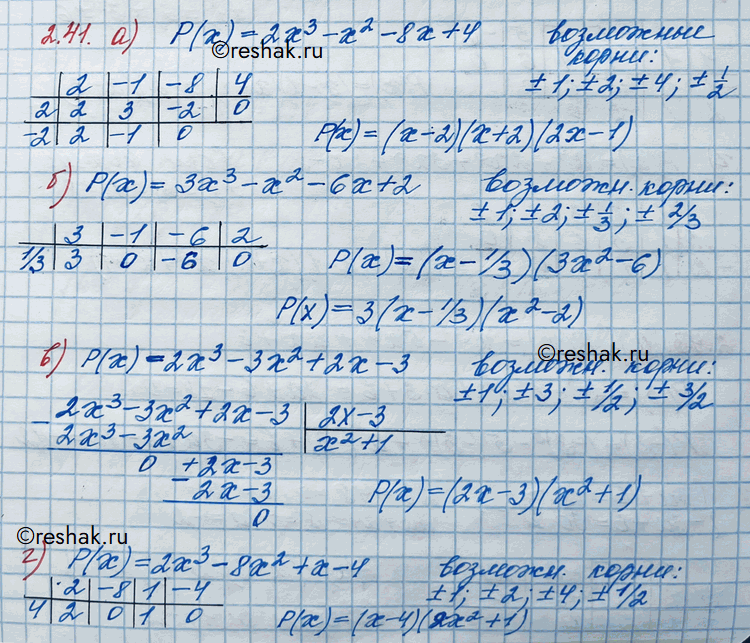 2.41. а) P(x) = 2x³ - x² - 8x + 4 возможные корни:
± 1; ± 2; ± 4; ± 1/2
2 | -1 | -8 | 4
2 | 2 | 3 | -2 | 0
-2 | 2 | -1 | 0
P(x) = (x-2)(x+2)(2x-1)
©reshak.ru
б) P(x) = 3x³ - x² - 6x + 2 возможн. корни:
± 1; ± 2; ± 1/3; ± 2/3
3 | -1 | -6 | 2
1/3 | 3 | 0 | -6 | 0
P(x) = (x - 1/3)(3x² - 6)
P(x) = 3(x - 1/3)(x² - 2)
©reshak.ru
в) P(x) = 2x³ - 3x² + 2x - 3 возможн. корни:
± 1; ± 3; ± 1/2; ± 3/2
- 2x³ - 3x² + 2x - 3 | 2x - 3
2x³ - 3x² | x² + 1
0 + 2x - 3
- 2x - 3
0
P(x) = (2x - 3)(x² + 1)
©reshak.ru
г) P(x) = 2x³ - 8x² + x - 4 возможн. корни:
± 1; ± 2; ± 4; ± 1/2
2 | -8 | 1 | -4
4 | 2 | 0 | 1 | 0
P(x) = (x-4)(2x² + 1)
©reshak.ru